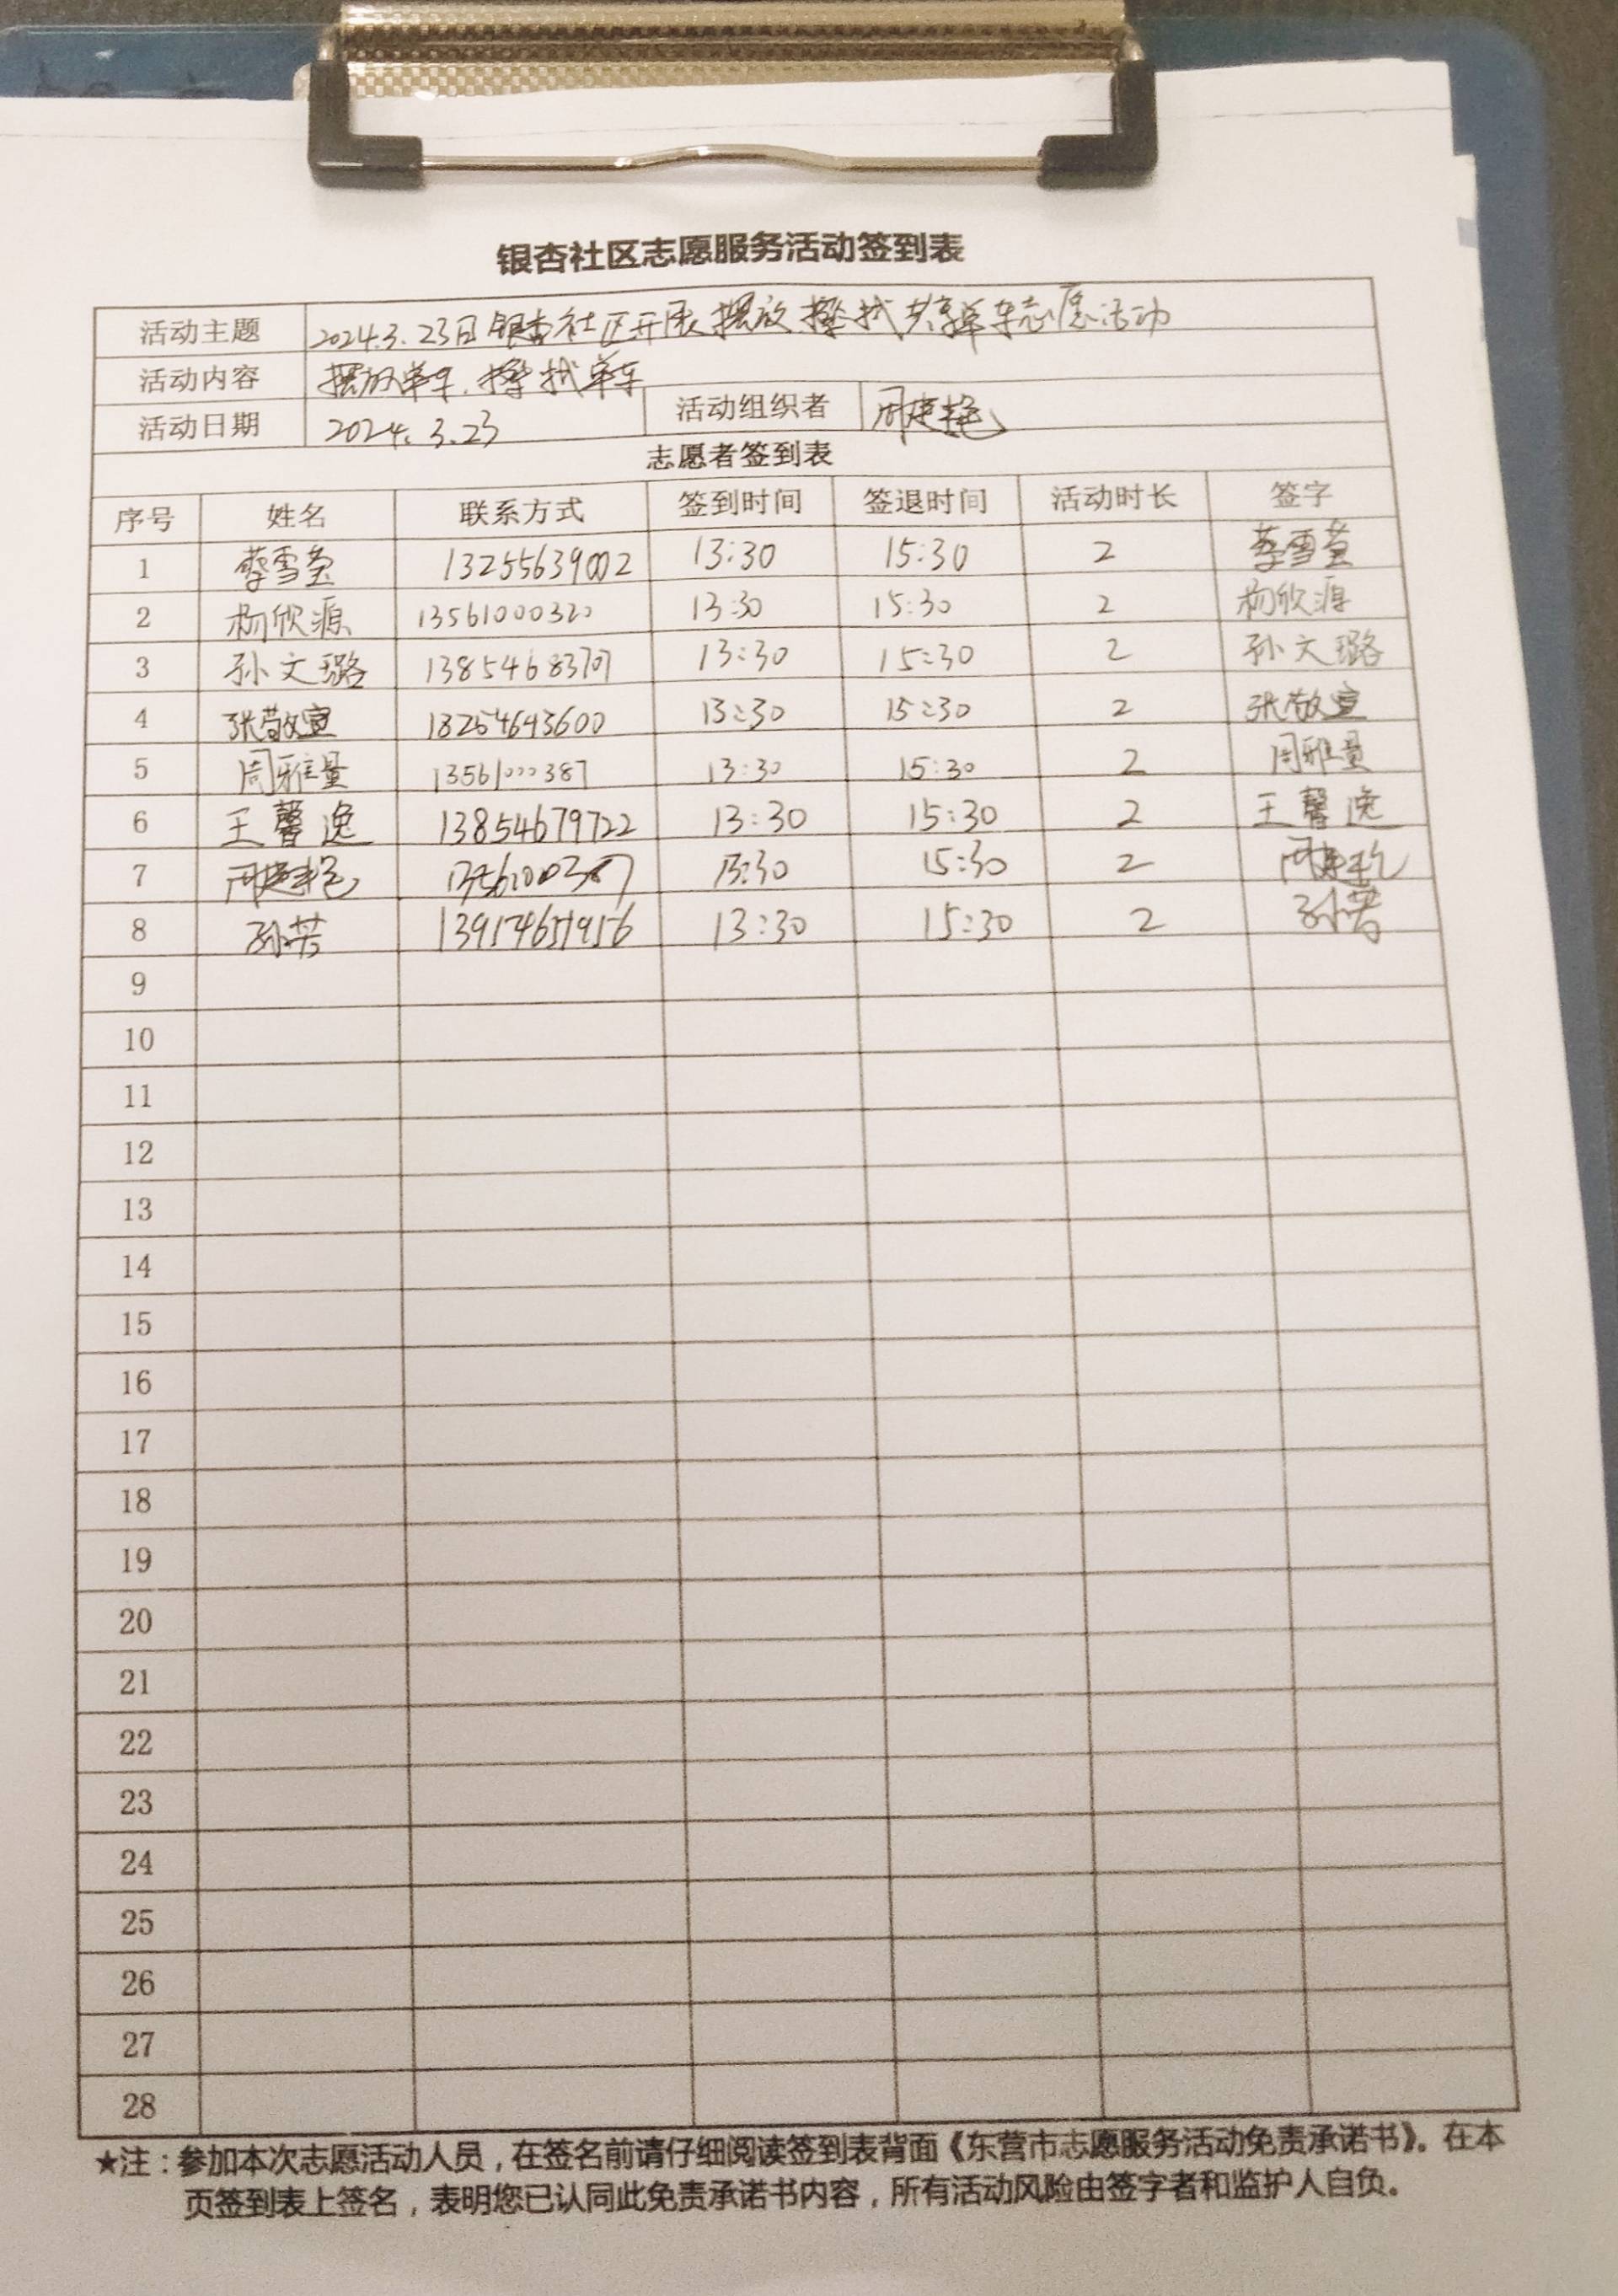 银杏社区志愿服务活动签到表
活动主题 2024.3.23日银杏社区开展摆放擦拭共享单车志愿活动
活动内容 摆放单车、擦拭单车
活动日期 2024.3.23 活动组织者 周建艳
志愿者签到表
序号 姓名 联系方式 签到时间 签退时间 活动时长 签字
1 雪莹 13255639002 13:30 15:30 2 雪莹
2 杨欣源 13561000320 13:30 15:30 2 杨欣源
3 孙文璐 13854683707 13:30 15:30 2 孙文璐
4 张敬宣 18254643600 13:30 15:30 2 张敬宣
5 周雅量 13561000387 13:30 15:30 2 周雅量
6 王馨逸 13854679722 13:30 15:30 2 王馨逸
7 周建艳 13561000387 13:30 15:30 2 周建艳
8 孙芳 13:30 15:30 2 孙芳
9
10
11
12
13
14
15
16
17
18
19
20
21
22
23
24
25
26
27
28
★注：参加本次志愿活动人员，在签名前请仔细阅读签到表背面《东营市志愿服务活动免责承诺书》。在本
页签到表上签名，表明您已认同此免责承诺书内容，所有活动风险由签字者和监护人自负。